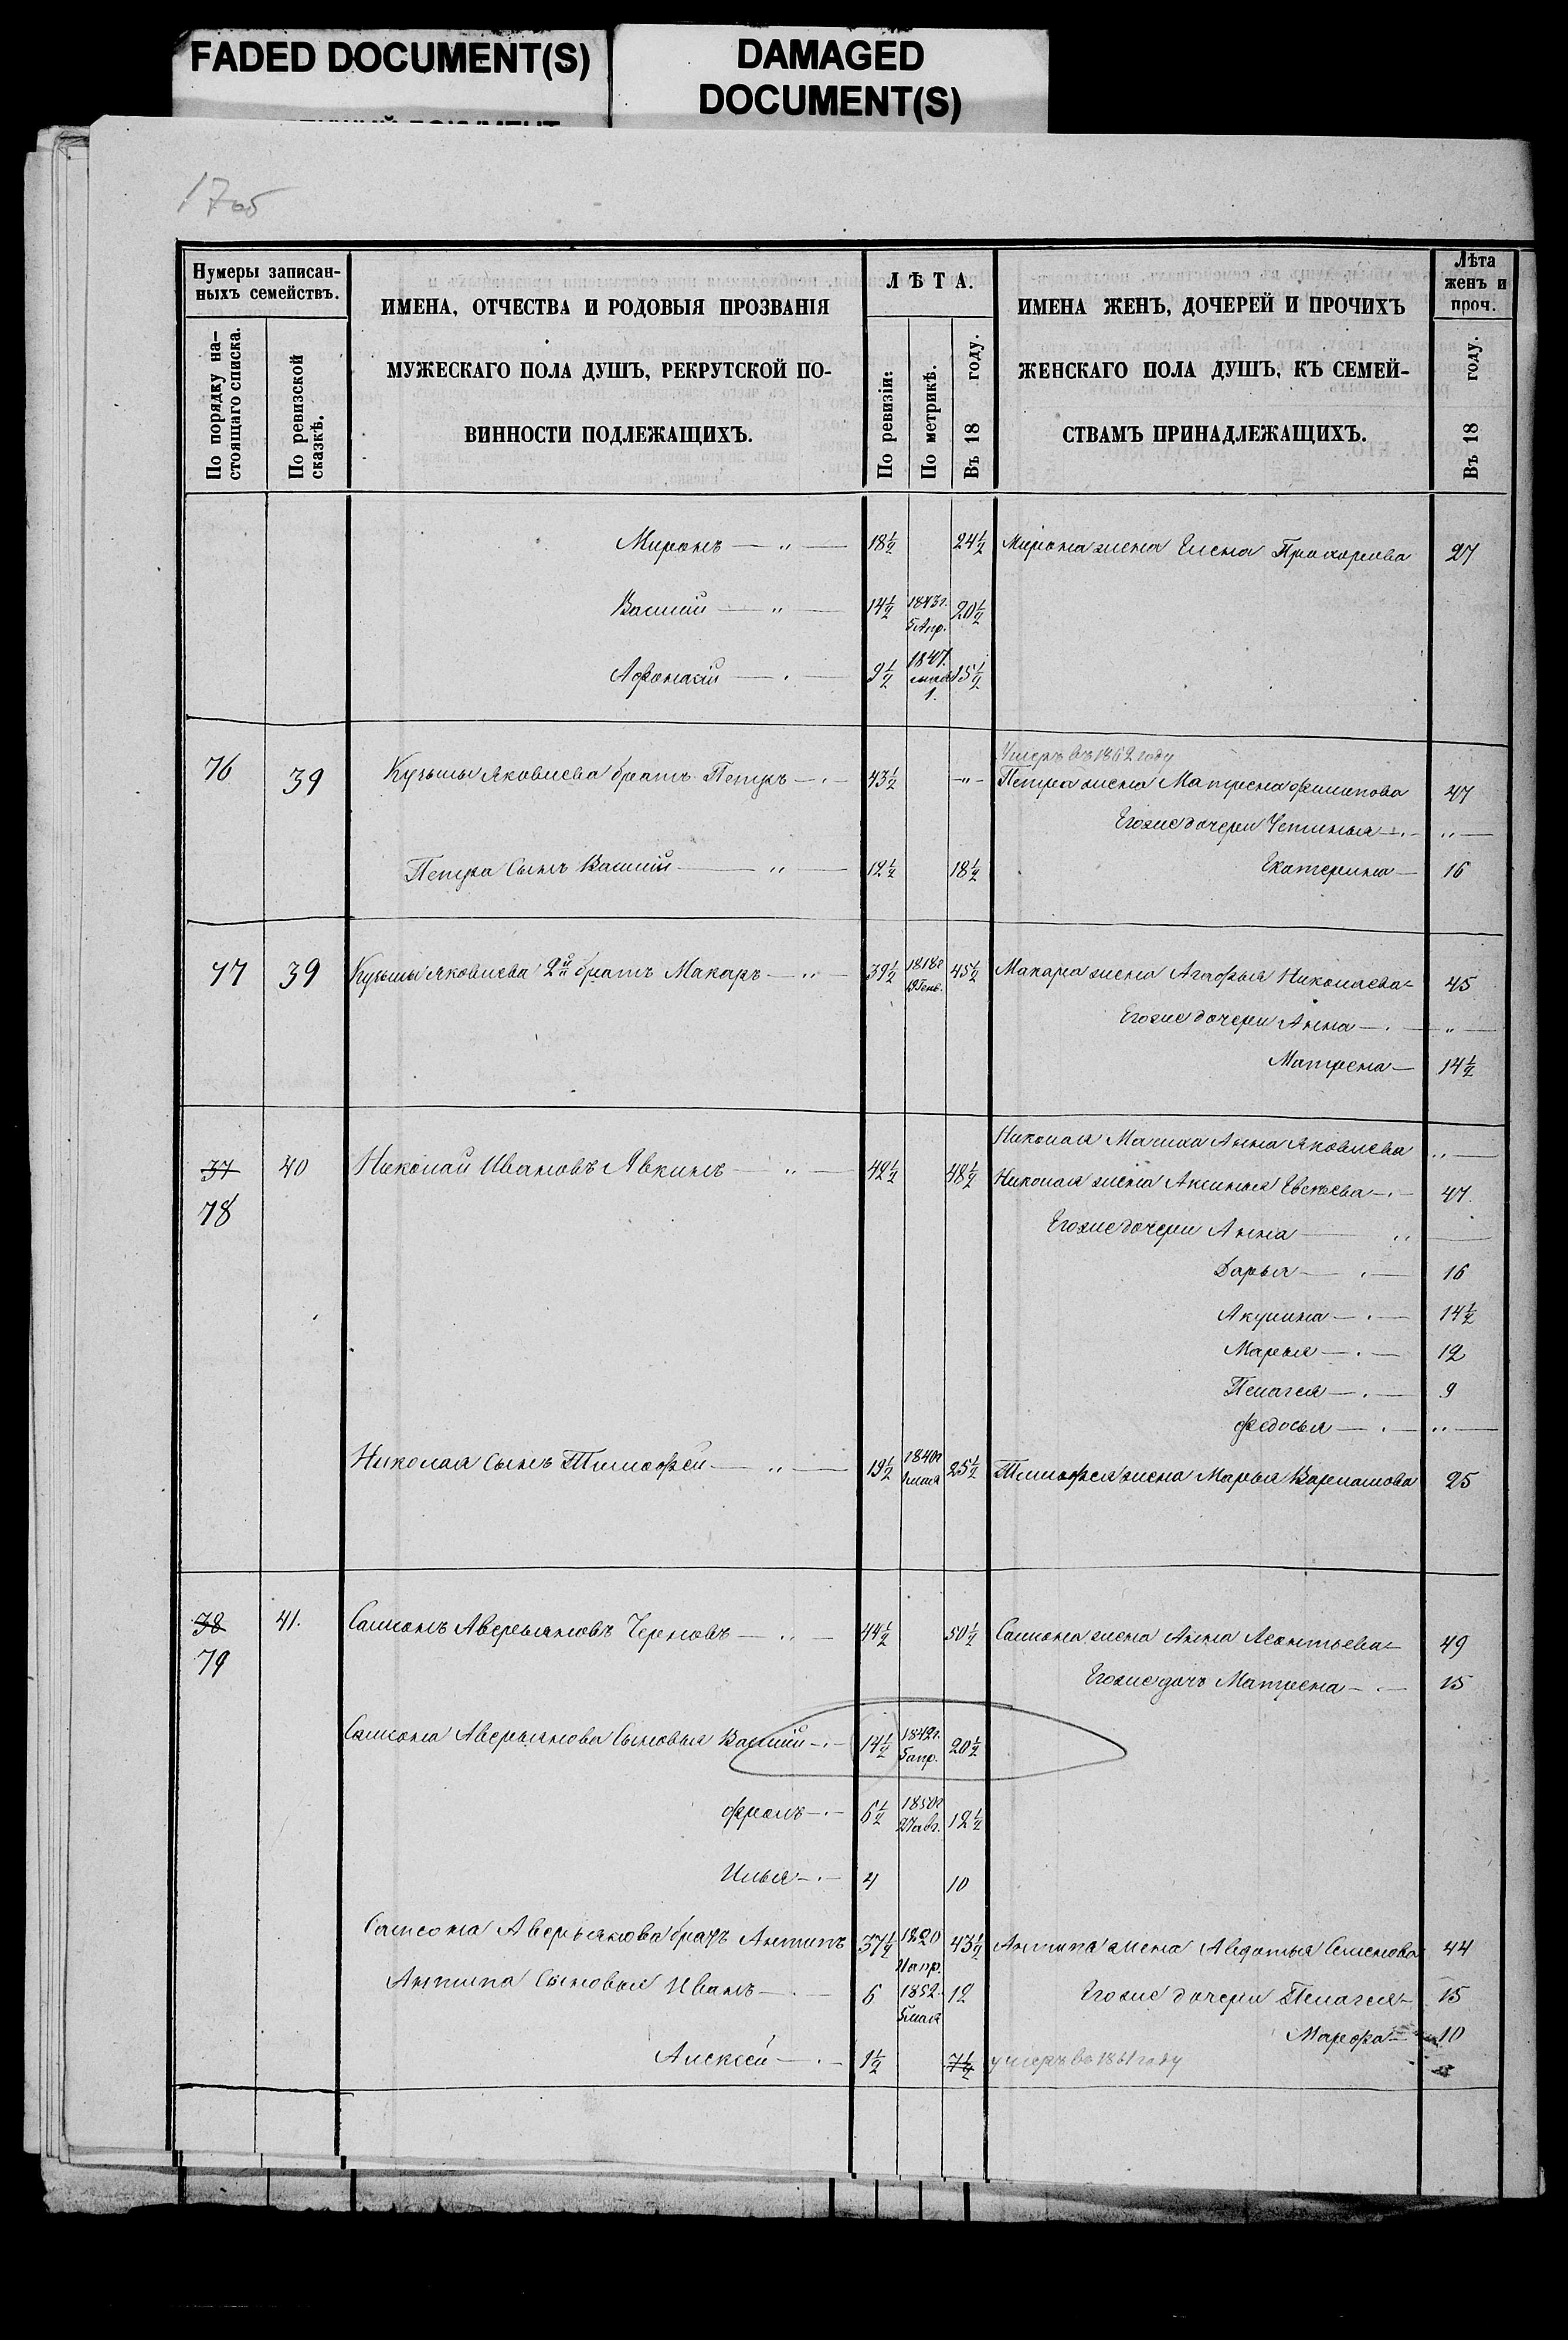 FADED DOCUMENT(S)
DAMAGED
DOCUMENT(S)
1705
Нумеры записан-
ныхъ семействъ.
По порядку на-
стоящаго списка.
По ревизской
сказкѣ.
ИМЕНА, ОТЧЕСТВА И РОДОВЫЯ ПРОЗВАНІЯ
МУЖЕСКАГО ПОЛА ДУШЪ, РЕКРУТСКОЙ ПО-
ВИННОСТИ ПОДЛЕЖАЩИХЪ.
ЛѢТА.
По ревизіи:
По метрикѣ.
Въ 18 году.
ИМЕНА ЖЕНЪ, ДОЧЕРЕЙ И ПРОЧИХЪ
ЖЕНСКАГО ПОЛА ДУШЪ, КЪ СЕМЕЙ-
СТВАМЪ ПРИНАДЛЕЖАЩИХЪ.
Лѣта
женъ и
проч.
Въ 18 году.
Миронъ — „ — 18½ 24½ Мирона жена Елена Прохорова 27
Василій — „ — 14½ 1843г. 5 Апр. 20½
Афонасій — „ — 9½ 1847. 1. 15½
Умеръ въ 1862 году
76 39 Кузьмы Яковлева братъ Петръ — „ — 43½ — „ — Петра жена Матрена Филипова 47
Егоже дочери Устинья — „ — „ —
Петра Сынъ Василій — „ — 12½ 18½ Екатерина — 16
77 39 Кузьмы Яковлева 2й братъ Макаръ — „ — 39½ 1818г 19 Генв. 45½ Макара жена Агафья Николаева — 45
Егоже дочери Анна — „ — „ —
Матрена — 14½
Николая Мачиха Анна Яковлева „ —
37 78 40 Николай Ивановъ Явкинъ — „ — 42½ 48½ Николая жена Аксинья Евсѣева — „ — 47
Егоже дочери Анна — „ —
Дарья — „ — 16
Акулина — „ — 14½
Марья — „ — 12
Пелагея — „ — 9
Федосья — „ — „ —
Николая Сынъ Тимофей — „ — 19½ 1840г 1 мая 25½ Тимофея жена Марья Варламова 25
38 79 41. Самсонъ Аверьяновъ Черновъ — „ — 44½ 50½ Самсона жена Анна Леонтьева — 49
Егоже дочь Матрена — „ — 15
Самсона Аверьянова Сыновья Василій — „ — 14½ 1842г. 5 апр. 20½
Фролъ — „ — 6½ 1850г 27 авг. 12½
Илья — „ — 4 10
Самсона Аверьянова братъ Антипъ 37½ 1820 11 апр. 43½ Антипа жена Авдотья Семенова 44
Антипа Сыновья Иванъ — „ — 6 1852. 5 мая 12 Егоже дочери Пелагея — 15
Марфа — 10
Алексѣй — „ — 1½ 7½ умеръ въ 1861 году